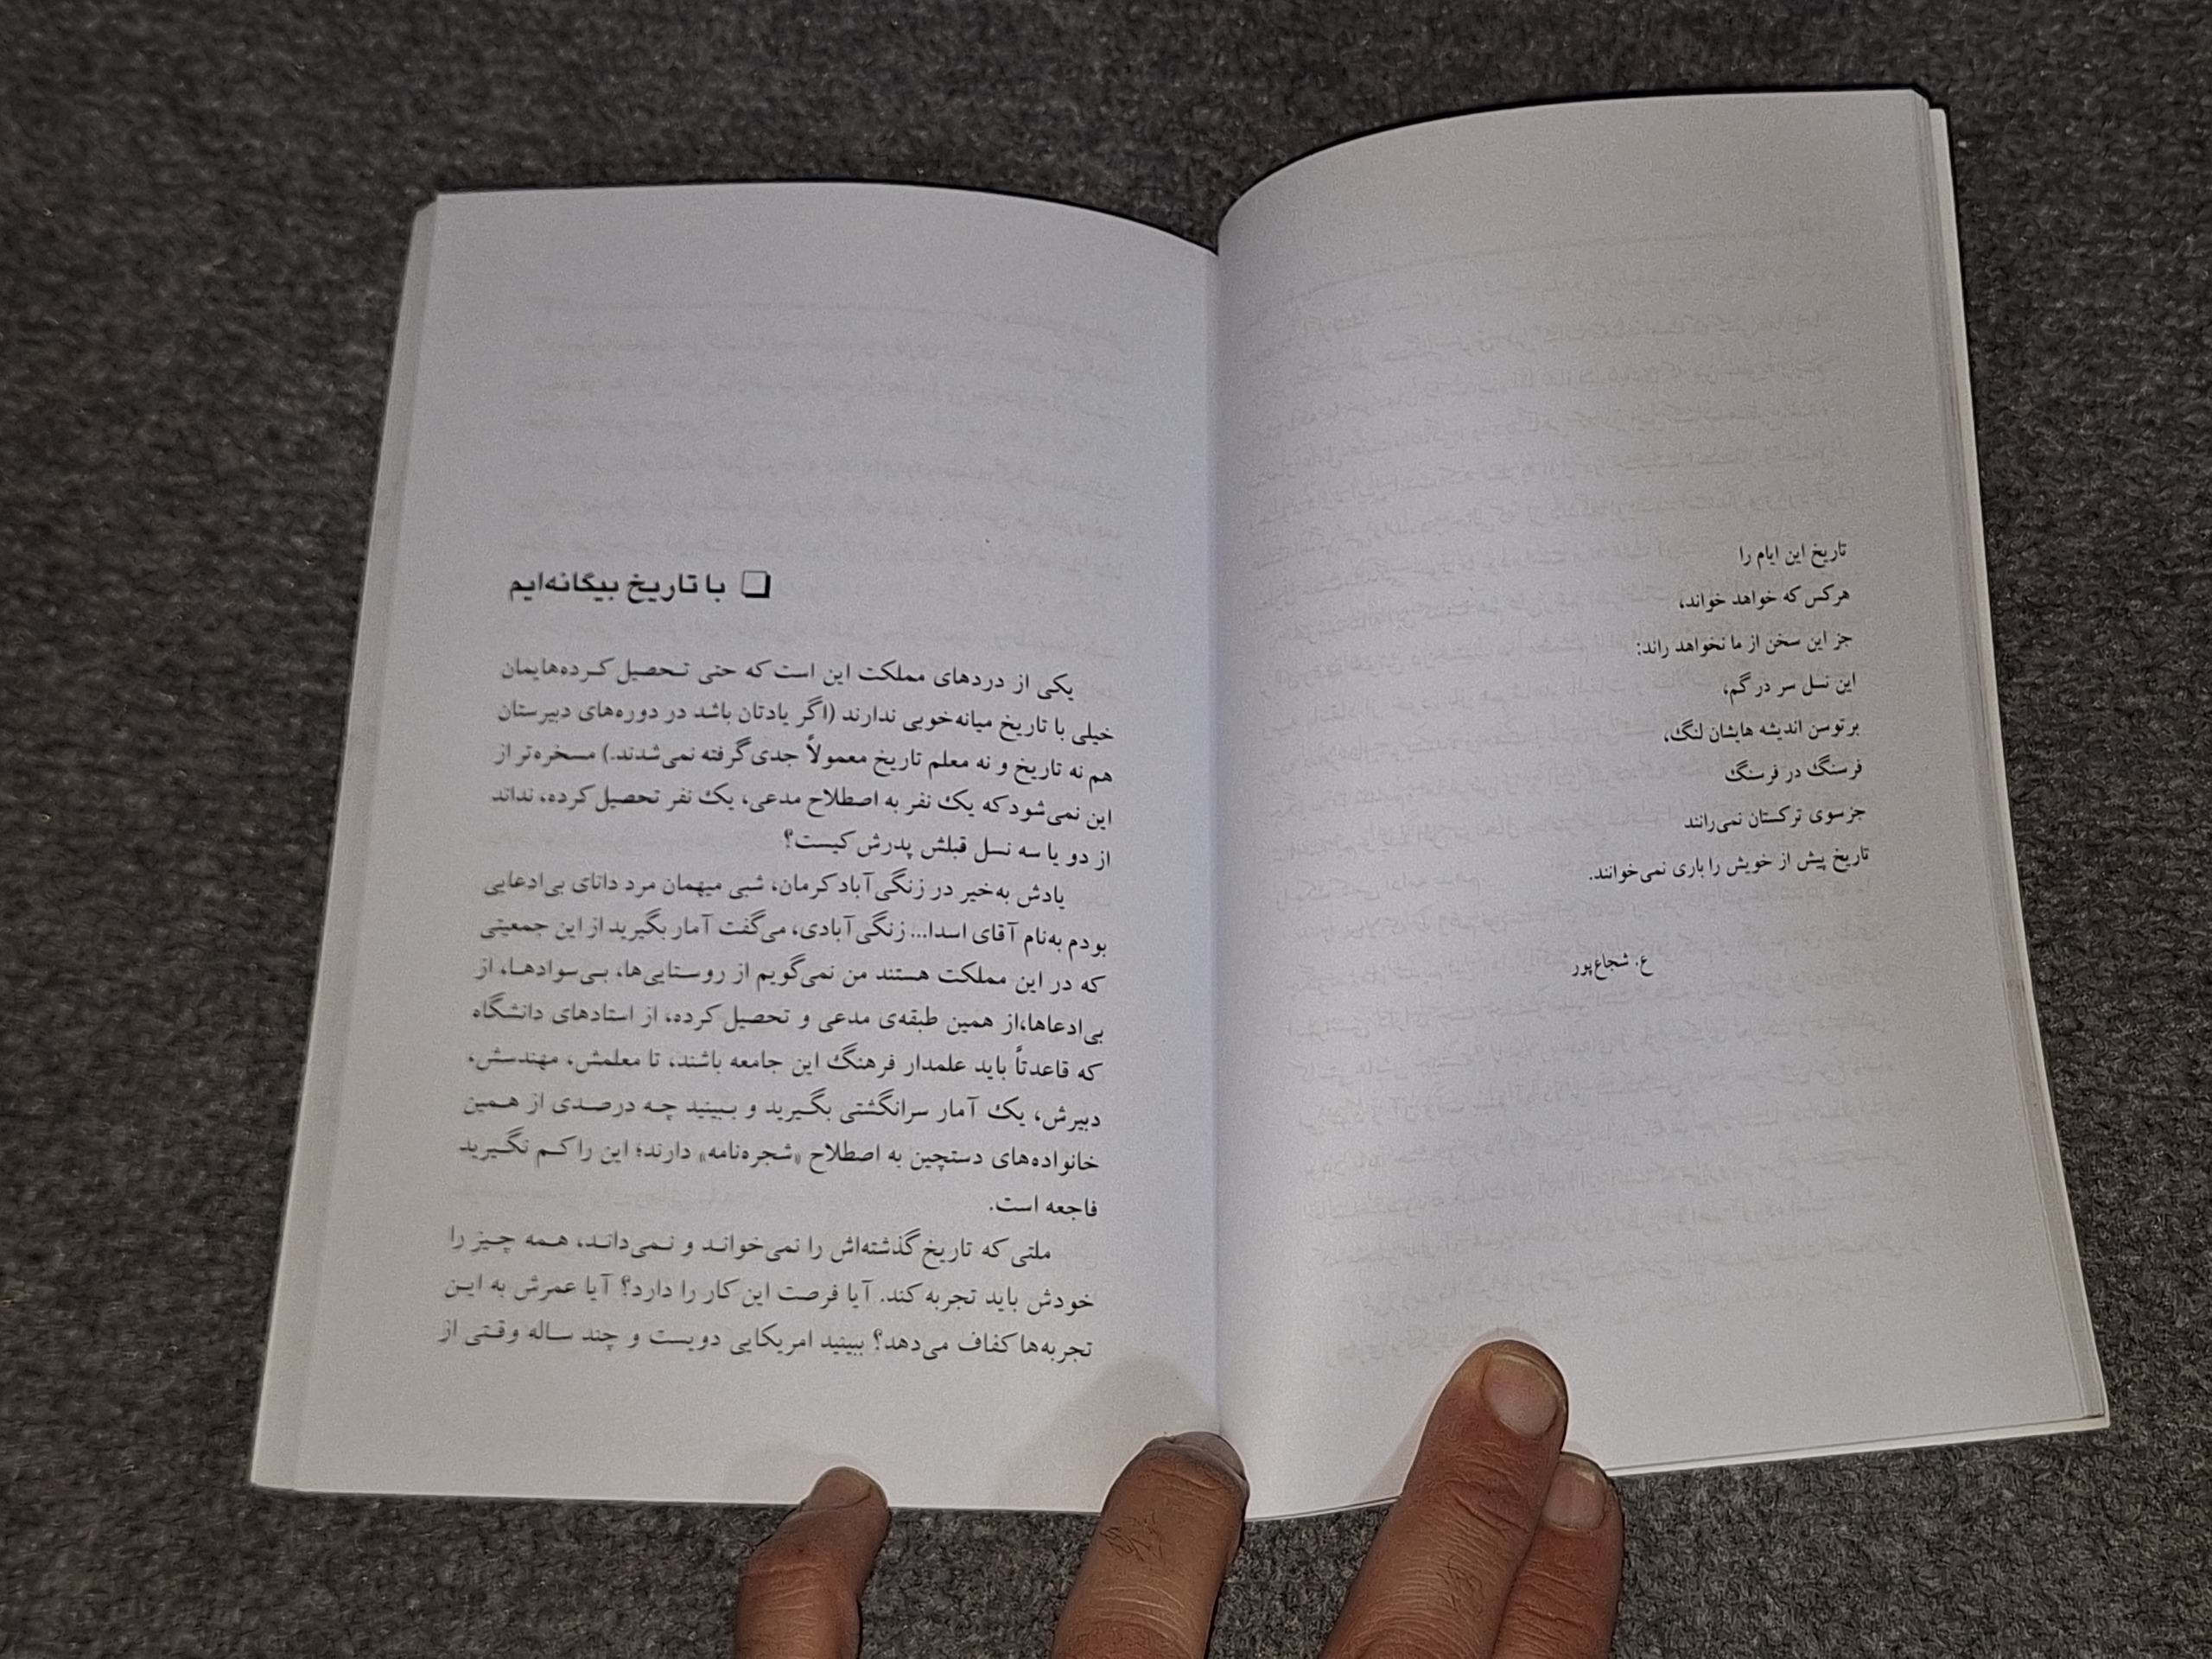 تاریخ این ایام را
هرکس که خواهد خواند،
جز این سخن از ما نخواهد راند:
این نسل سر در گم،
بر توسن اندیشه هایشان لنگ،
فرسنگ در فرسنگ
جز سوی ترکستان نمی‌رانند
تاریخ پیش از خویش را باری نمی‌خوانند.
ع. شجاع‌پور
❏ با تاریخ بیگانه‌ایم
یکی از دردهای مملکت این است که حتی تحصیل کرده‌هایمان
خیلی با تاریخ میانه‌خوبی ندارند (اگر یادتان باشد در دوره‌های دبیرستان
هم نه تاریخ و نه معلم تاریخ معمولاً جدی گرفته نمی‌شدند.) مسخره‌تر از
این نمی‌شود که یک نفر به اصطلاح مدعی، یک نفر تحصیل کرده، نداند
از دو یا سه نسل قبلش پدرش کیست؟
یادش به‌خیر در زنگی‌آباد کرمان، شبی میهمان مرد دانای بی‌ادعایی
بودم به‌نام آقای اسدا... زنگی‌آبادی، می‌گفت آمار بگیرید از این جمعیتی
که در این مملکت هستند من نمی‌گویم از روستایی‌ها، بی‌سوادها، از
بی‌ادعاها،از همین طبقه‌ی مدعی و تحصیل کرده، از استادهای دانشگاه
که قاعدتاً باید علمدار فرهنگ این جامعه باشند، تا معلمش، مهندسش،
دبیرش، یک آمار سرانگشتی بگیرید و ببینید چه درصدی از همین
خانواده‌های دستچین به اصطلاح «شجره‌نامه» دارند؛ این را کم نگیرید
فاجعه است.
ملتی که تاریخ گذشته‌اش را نمی‌خواند و نمی‌داند، همه چیز را
خودش باید تجربه کند. آیا فرصت این کار را دارد؟ آیا عمرش به این
تجربه‌ها کفاف می‌دهد؟ ببینید امریکایی دویست و چند ساله وقتی از